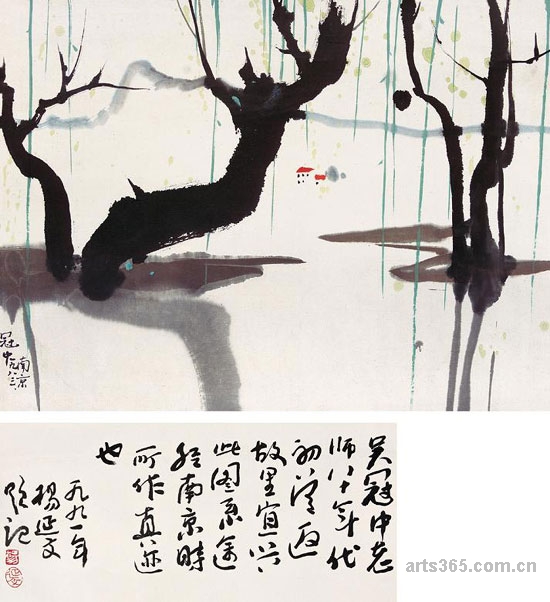 南京
冠中
吴冠中老
师八十年代
初返
故里宜兴
此图系途
经南京时
所作真迹
也
一九九一年
杨延文
题记
arts365.com.cn